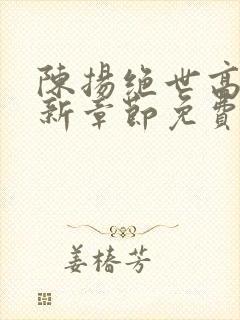 陳揚絕世高
新章節免費
姜椿芳